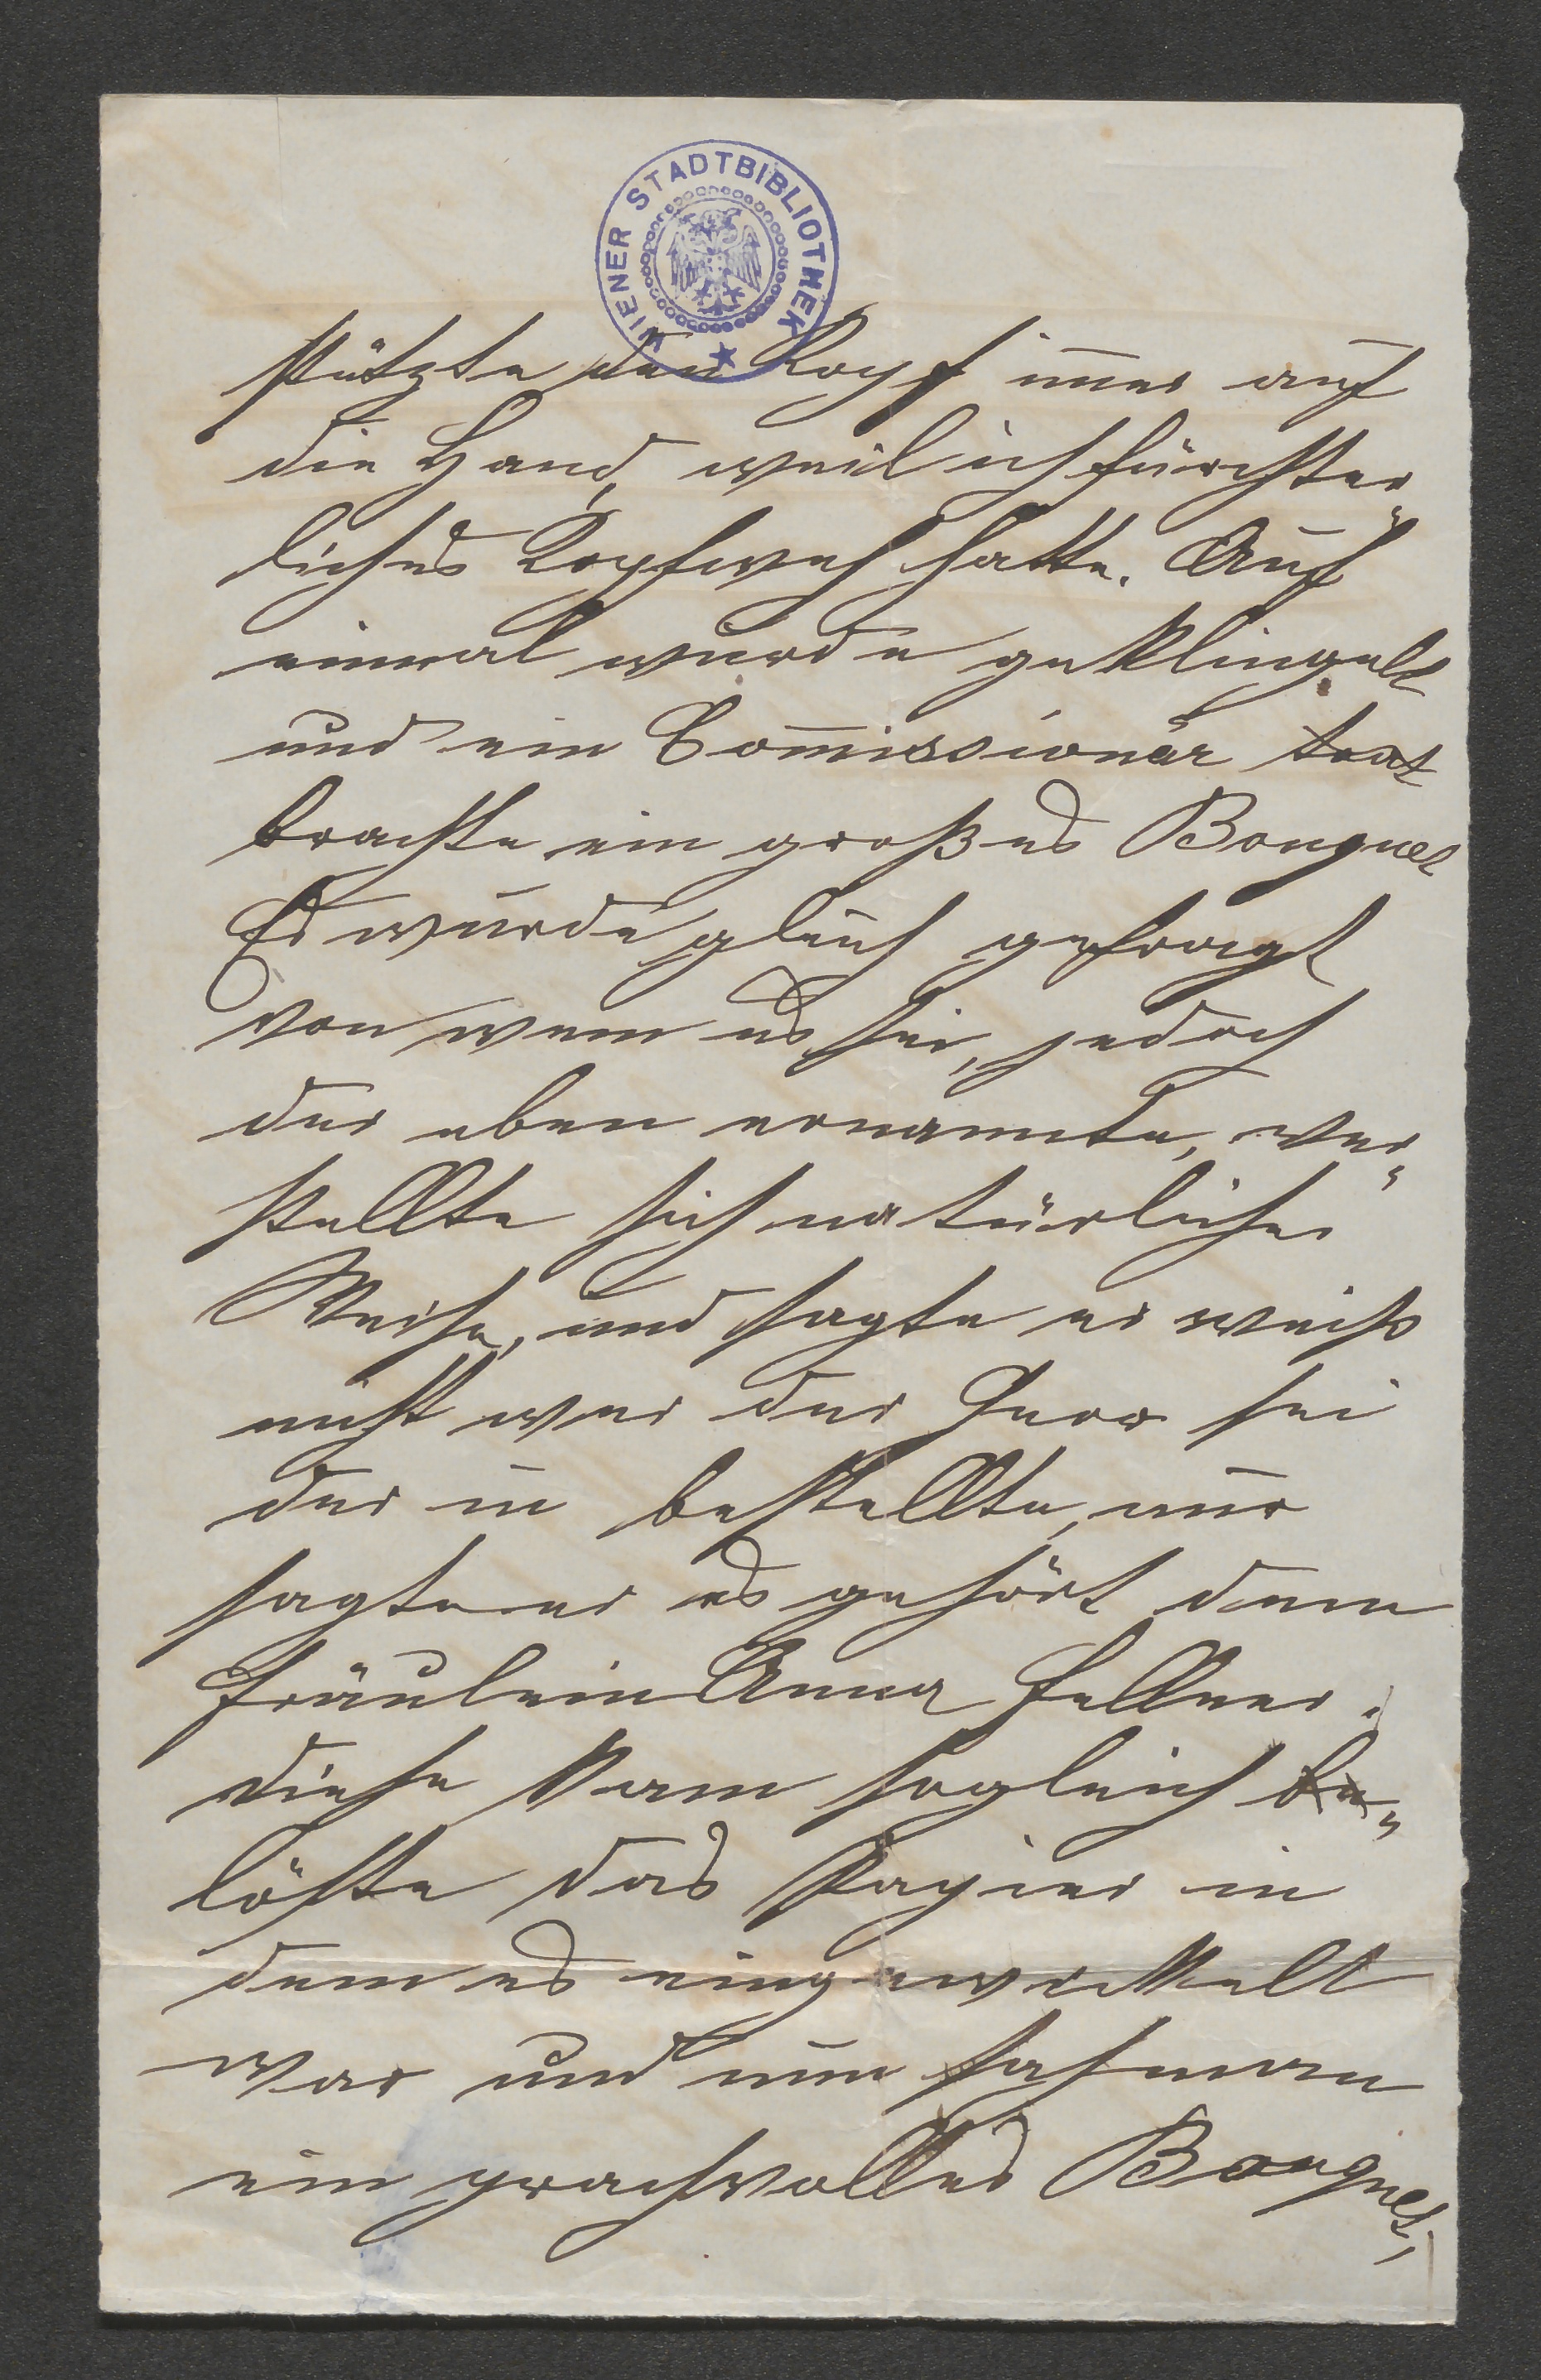 WIENER STADTBIBLIOTHEK
stützte den Kopf im̅er auf
die Hand, weil ich fürchter„
liches Kopfweh hatte. Auf
einmal wurde geklingelt
und ein Com̅issionär trat
brachte ein großes Bouquet
Es wurde gleich gefragt
von wem es sei, jedoch
der eben ernannte, ver„
stellte sich natürlicher
Weise, und sagte er weiß
nicht wer der Herr sei
der in bestellte, nur
sagte er es gehört dem
Fräulein Anna Fellner.
diese kam sogleich be„
löste das Papier in
dem es eingewickelt
war und nun sah man
ein prachvolles Bouquet,